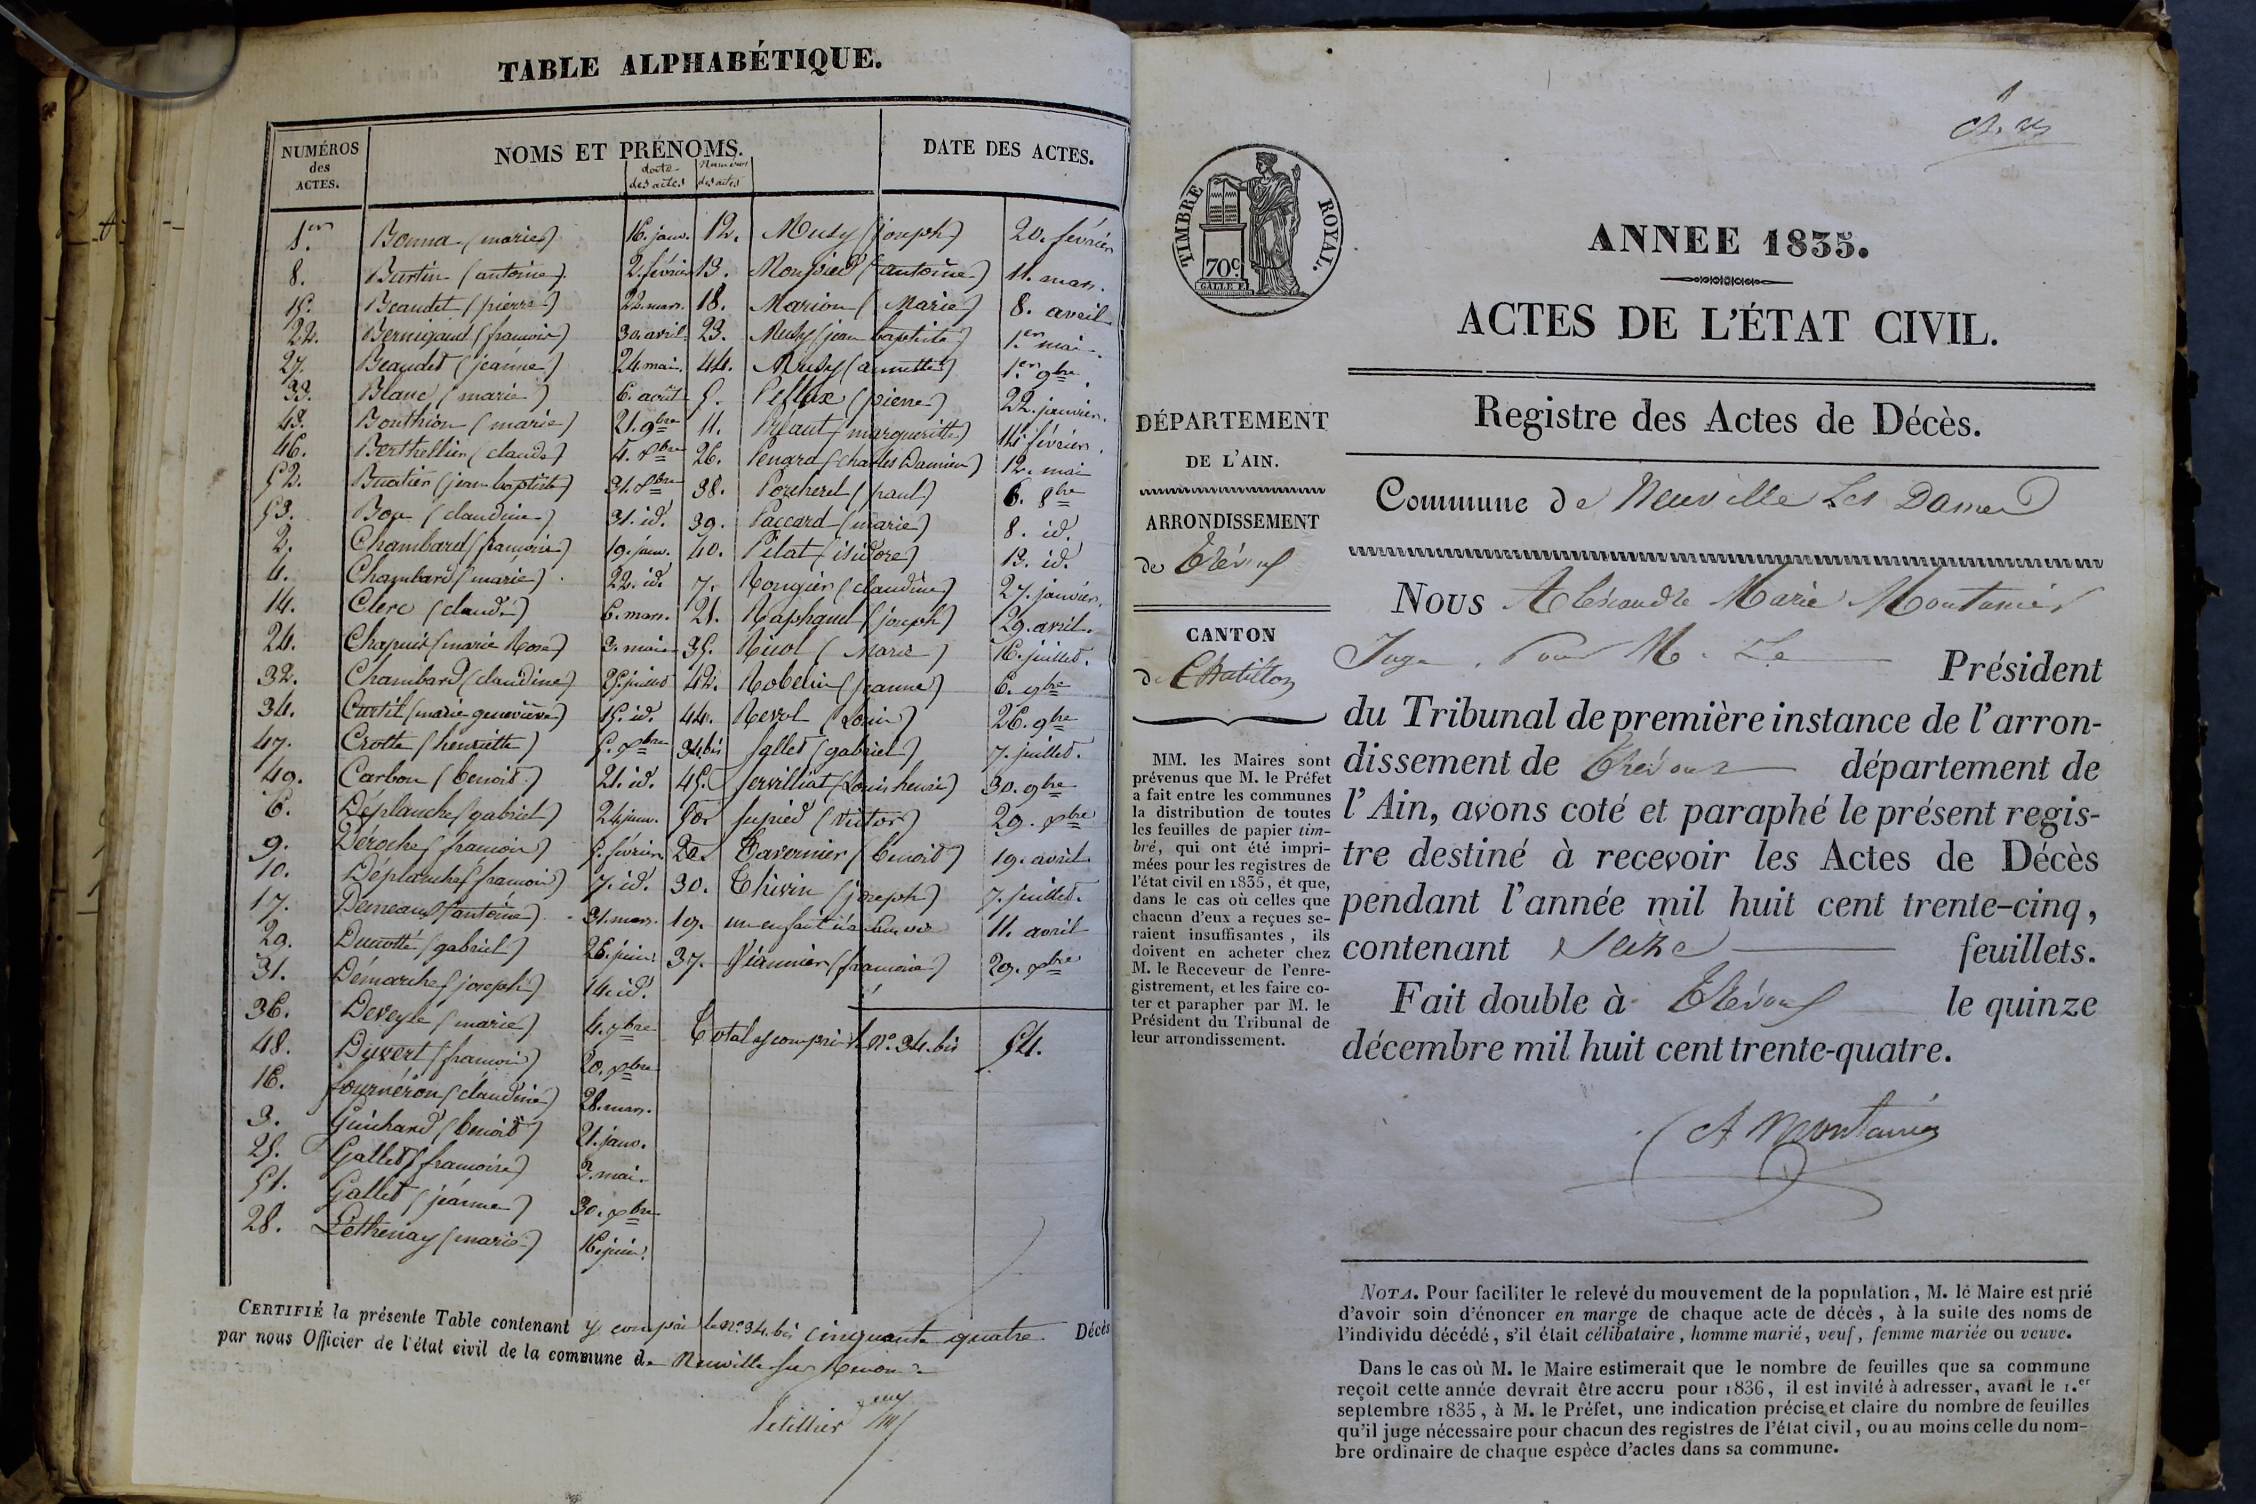 TABLE ALPHABÉTIQUE.
NUMÉROS
des
ACTES.
NOMS ET PRÉNOMS.
date
des actes
Numéros
des actes
DATE DES ACTES.
1.er Bonna (marie) 16. janv. 12. Musy (joseph) 20. février
8. Burtin (antoine) 2. février 13. Monpied (antoine) 11. mars.
15. Beaudet (pierre) 22. mars. 18. Marion (Marie) 8. avril
22. Bernigaud (francois) 30. avril 23. Musy (jean baptiste) 1.er mai.
27. Beaudet (jeanne) 24. mai. 44. Musy (annette) 1.er 9bre.
33. Blanc (marie) 6. août 5. Pellux (pierre) 22. janvier.
43. Bouthion (marie) 21. 9bre 11. Pilaut (margueritte) 14 février.
46. Berthellier (claude) 4. Xbre 26. Penard (Charles Damien) 12. mai
52. Buatier (jean baptiste) 31. Xbre 38. Porcherel (paul) 6. 8bre
53. Boy (claudine) 31. id. 39. Paccard (marie) 8. id.
2. Chambard (francoise) 19. janv. 40. Pilat (isidore) 13. id.
4. Chambard (marie). 22. id. 7. Rougier (claudine) 27. janvier.
14. Clerc (claude) 6. mars. 21. Raphanel (joseph) 29. avril.
24. Chapuis (marie Rose) 3. mai 35. Riol (Marie) 16. juillet.
32. Chambard (claudine) 25. juillet 42. Robelin (jeanne) 6. 9bre
34. Curtil (marie geneviève) 15. id. 44. Revol (Louis) 26. 9bre
47. Crotte (henriette) 5. Xbre 34 bis Sallet (gabriel) 7. juillet.
49. Carbon (benoit) 21. id. 45. Servilliat (Louis henri) 30. 9bre
6. Déplanche (gabriel) 24 janv. 50. Supied (Victor) 29. Xbre
9. Déroche (francois) 5. février 20. Tavernier (benoit) 19. avril
10. Déplanche (francois) 7. id. 30. Thivin (joseph) 7. juillet.
17. Daneaux (antoine). 31. mars. 19. un enfant né sans vie 11. avril
29. Ducotté (gabriel) 26. juin. 37. Viannier (francoise) 29. Xbre
31. Démarche (joseph) 14. id.
36. Deveyle (marie) 4. 9bre Total y compris le N.º 34. bis 54.
48. Duvert (francois) 20. Xbre
16. fournéron (claudine) 28. mars.
3. Guichard (benoit) 21. janv.
25. Gallet (francoise) 3. mai.
51. Gallet (jeanne) 30. Xbre
28. Léthenay (marie) 16. juin.
CERTIFIÉ la présente Table contenant y compris le nº 34. bis cinquante quatre Décès
par nous Officier de l'état civil de la commune de Neuville sur Renom
TIMBRE ROYAL.
70c
ANNEE 1835.
ACTES DE L'ÉTAT CIVIL.
Registre des Actes de Décès.
Commune de Neuville Les Dames
DÉPARTEMENT
DE L'AIN.
ARRONDISSEMENT
de Trévoux
CANTON
de Chatillon
MM. les Maires sont
prévenus que M. le Préfet
a fait entre les communes
la distribution de toutes
les feuilles de papier tim-
bré, qui ont été impri-
mées pour les registres de
l'état civil en 1835, et que,
dans le cas où celles que
chacun d'eux a reçues se-
raient insuffisantes, ils
doivent en acheter chez
M. le Receveur de l'enre-
gistrement, et les faire co-
ter et parapher par M. le
Président du Tribunal de
leur arrondissement.
Nous Alexandre Marie Montanier
Juge. Pour M. Le Président
du Tribunal de première instance de l'arron-
dissement de Trévoux département de
l'Ain, avons coté et paraphé le présent regis-
tre destiné à recevoir les Actes de Décès
pendant l'année mil huit cent trente-cinq,
contenant Seize feuillets.
Fait double à Trévoux le quinze
décembre mil huit cent trente-quatre.
A Montanier
NOTA. Pour faciliter le relevé du mouvement de la population, M. le Maire est prié
d'avoir soin d'énoncer en marge de chaque acte de décès, à la suite des noms de
l'individu décédé, s'il était célibataire, homme marié, veuf, femme mariée ou veuve.
Dans le cas où M. le Maire estimerait que le nombre de feuilles que sa commune
reçoit cette année devrait être accru pour 1836, il est invité à adresser, avant le 1.er
septembre 1835, à M. le Préfet, une indication précise et claire du nombre de feuilles
qu'il juge nécessaire pour chacun des registres de l'état civil, ou au moins celle du nom-
bre ordinaire de chaque espèce d'actes dans sa commune.